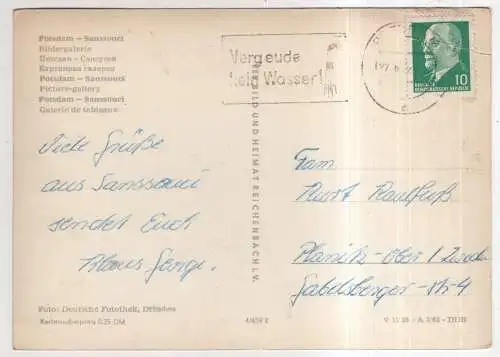 Potsdam – Sanssouci
Bildergalerie
Потсдам – Сансуси
Картинная галерея
Potsdam – Sanssouci
Picture-gallery
Potsdam – Sanssouci
Galerie de tableaux
Vergeude
kein Wasser!
10
DEUTSCHE
DEMOKRATISCHE REPUBLIK
Viele Grüße
aus Sanssouci
sendet Euch
Klaus
Fam
Kurt Raufuß
Planitz-Ober / Zwickau
Gabelsberger-Str 4
BILD UND HEIMAT REICHENBACH I. V.
Foto: Deutsche Fotothek, Dresden
Kartenpreis 0,25 DM
V 11 28 - A 2/62 - DDR